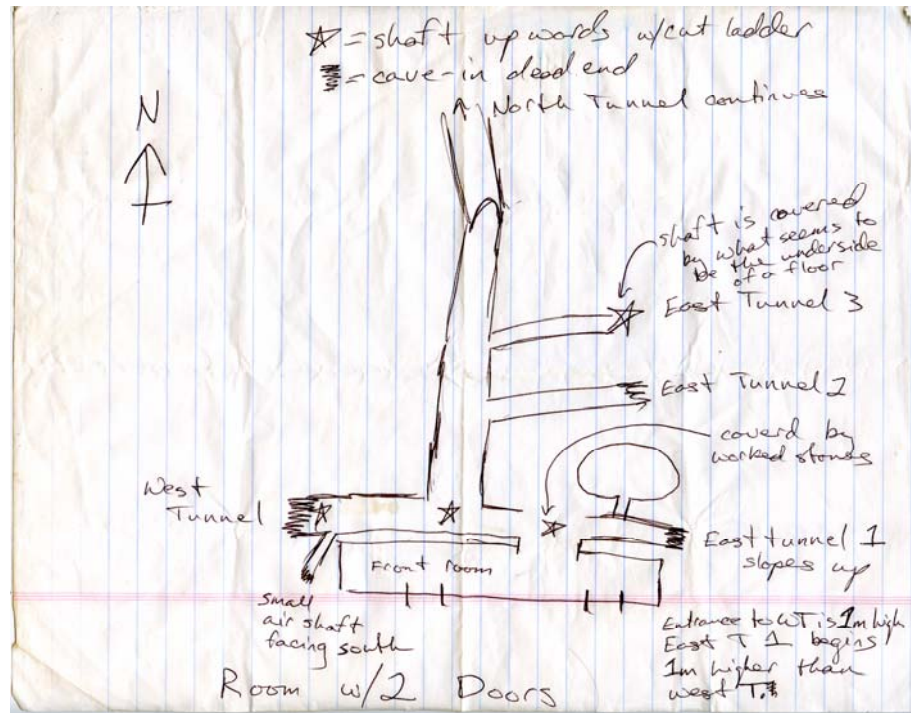 = shaft upwards w/cut ladder
= cave-in dead end
North Tunnel continues
N
shaft is covered
by what seems to
be the underside
of a floor
East Tunnel 3
East Tunnel 2
coverd by
worked stones
West
Tunnel
East tunnel 1
slopes up
Front room
small
air shaft
facing south
Entrance to WT is 1m high
East T 1 begins
1m higher than
west T.
Room w/2 Doors